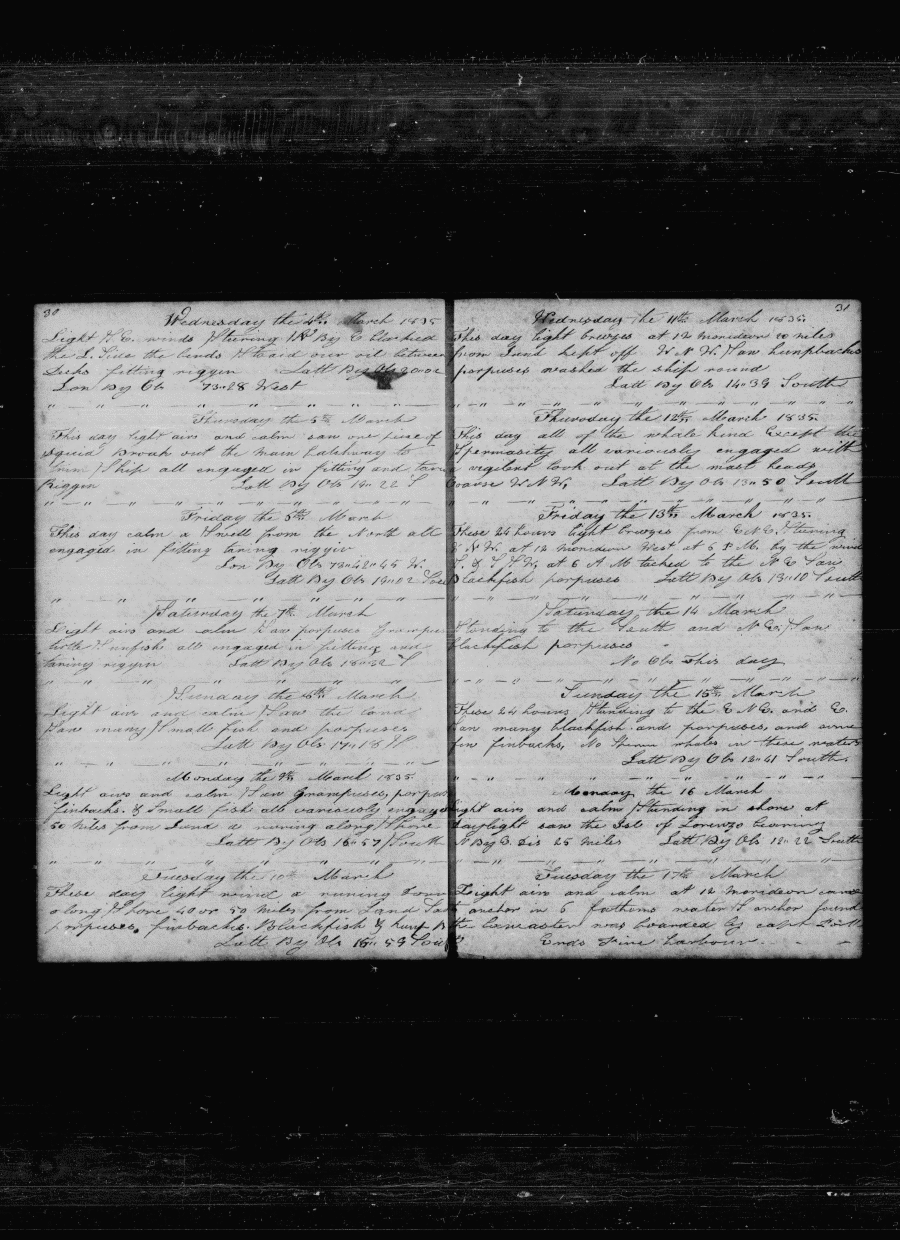 30
Wednesday the 4th March 1835
Light S.E. winds Stering N By E blacked
the L. Side the bends Staid our oil between
Decks fitting riggin Latt By Ob 20.02
Lon By Ob 73=28 West
Thursday the 5th March
This day light airs and calm saw one piece of
squid Broak out the main hatchway to
trim Ship all engaged in fitting and taring
Riggin Latt By Obs 19= 22 S
Friday the 6th March
This day calm a Swell from the North all
engaged in fitting taring riggin
Lon By Obs 73=42=45 W.
Latt By Obs 19=02 South
Saturday the 7th March
Light airs and calm Saw porpuses Grampuses
turtle Sunfish all engaged in fitting and
taring riggin Latt By Obs 18=32 S
Sunday the 8th March
Light airs and calm Saw the land
Saw many Small fish and porpuses
Latt By Obs 17=18 S
Monday the 9th March 1835
Light airs and calm Saw Grampuses, porpuses
finbacks. & Small fish all variously engaged
50 Miles from Land a runing along Shore
Latt By Obs 16=57 South
Tuesday the 10th March
These day light wind a runing down
along Shore 40 or 50 Miles from Land Saw
porpuses. finbacks. Blackfish &
Latt By Obs 15= 59 South
31
Wednesday the 11th March 1835.
This day light breezes at 12 meridean 20 miles
from Land kept off W N W. Saw humpbacks
porpuses washed the ship round
Latt By Obs 14=39 South
Thursday the 12th March 1835
This day all of the whale kind Except the
Spermasity all variously engaged with
a vigilent look out at the mast heads
Course W N W. Latt By Obs 13=50 South
Friday the 13th March 1835.
These 24 hours light breezes from E N E. Stering
W N W. at 12 meridean West at 5 P M. by the wind
S. & S S W. at 6 A M tacked to the N E Saw
Blackfish porpuses Latt By Obs 13=10 South
Saturday the 14 March
Standing to the South and N E. Saw
blackfish porpuses
No Obs This day
Sunday the 15th March
These 24 hours Standing to the E N E. and E.
Saw many blackfish and porpuses, and some
few finbacks, No Sperm whales in these waters
Latt By Obs 12=41 South.
Monday the 16 March
Light airs and calm Standing in shore at
daylight saw the Isl of Lorenzo bearing
N By E. Dis 25 Miles Latt By Obs 12= 22 South
Tuesday the 17th March
Light airs and calm at 12 meridean came
to anchor in 5 fathoms water S anchor found
the Lancaster was boarded by capt
Ends Fine harbour.